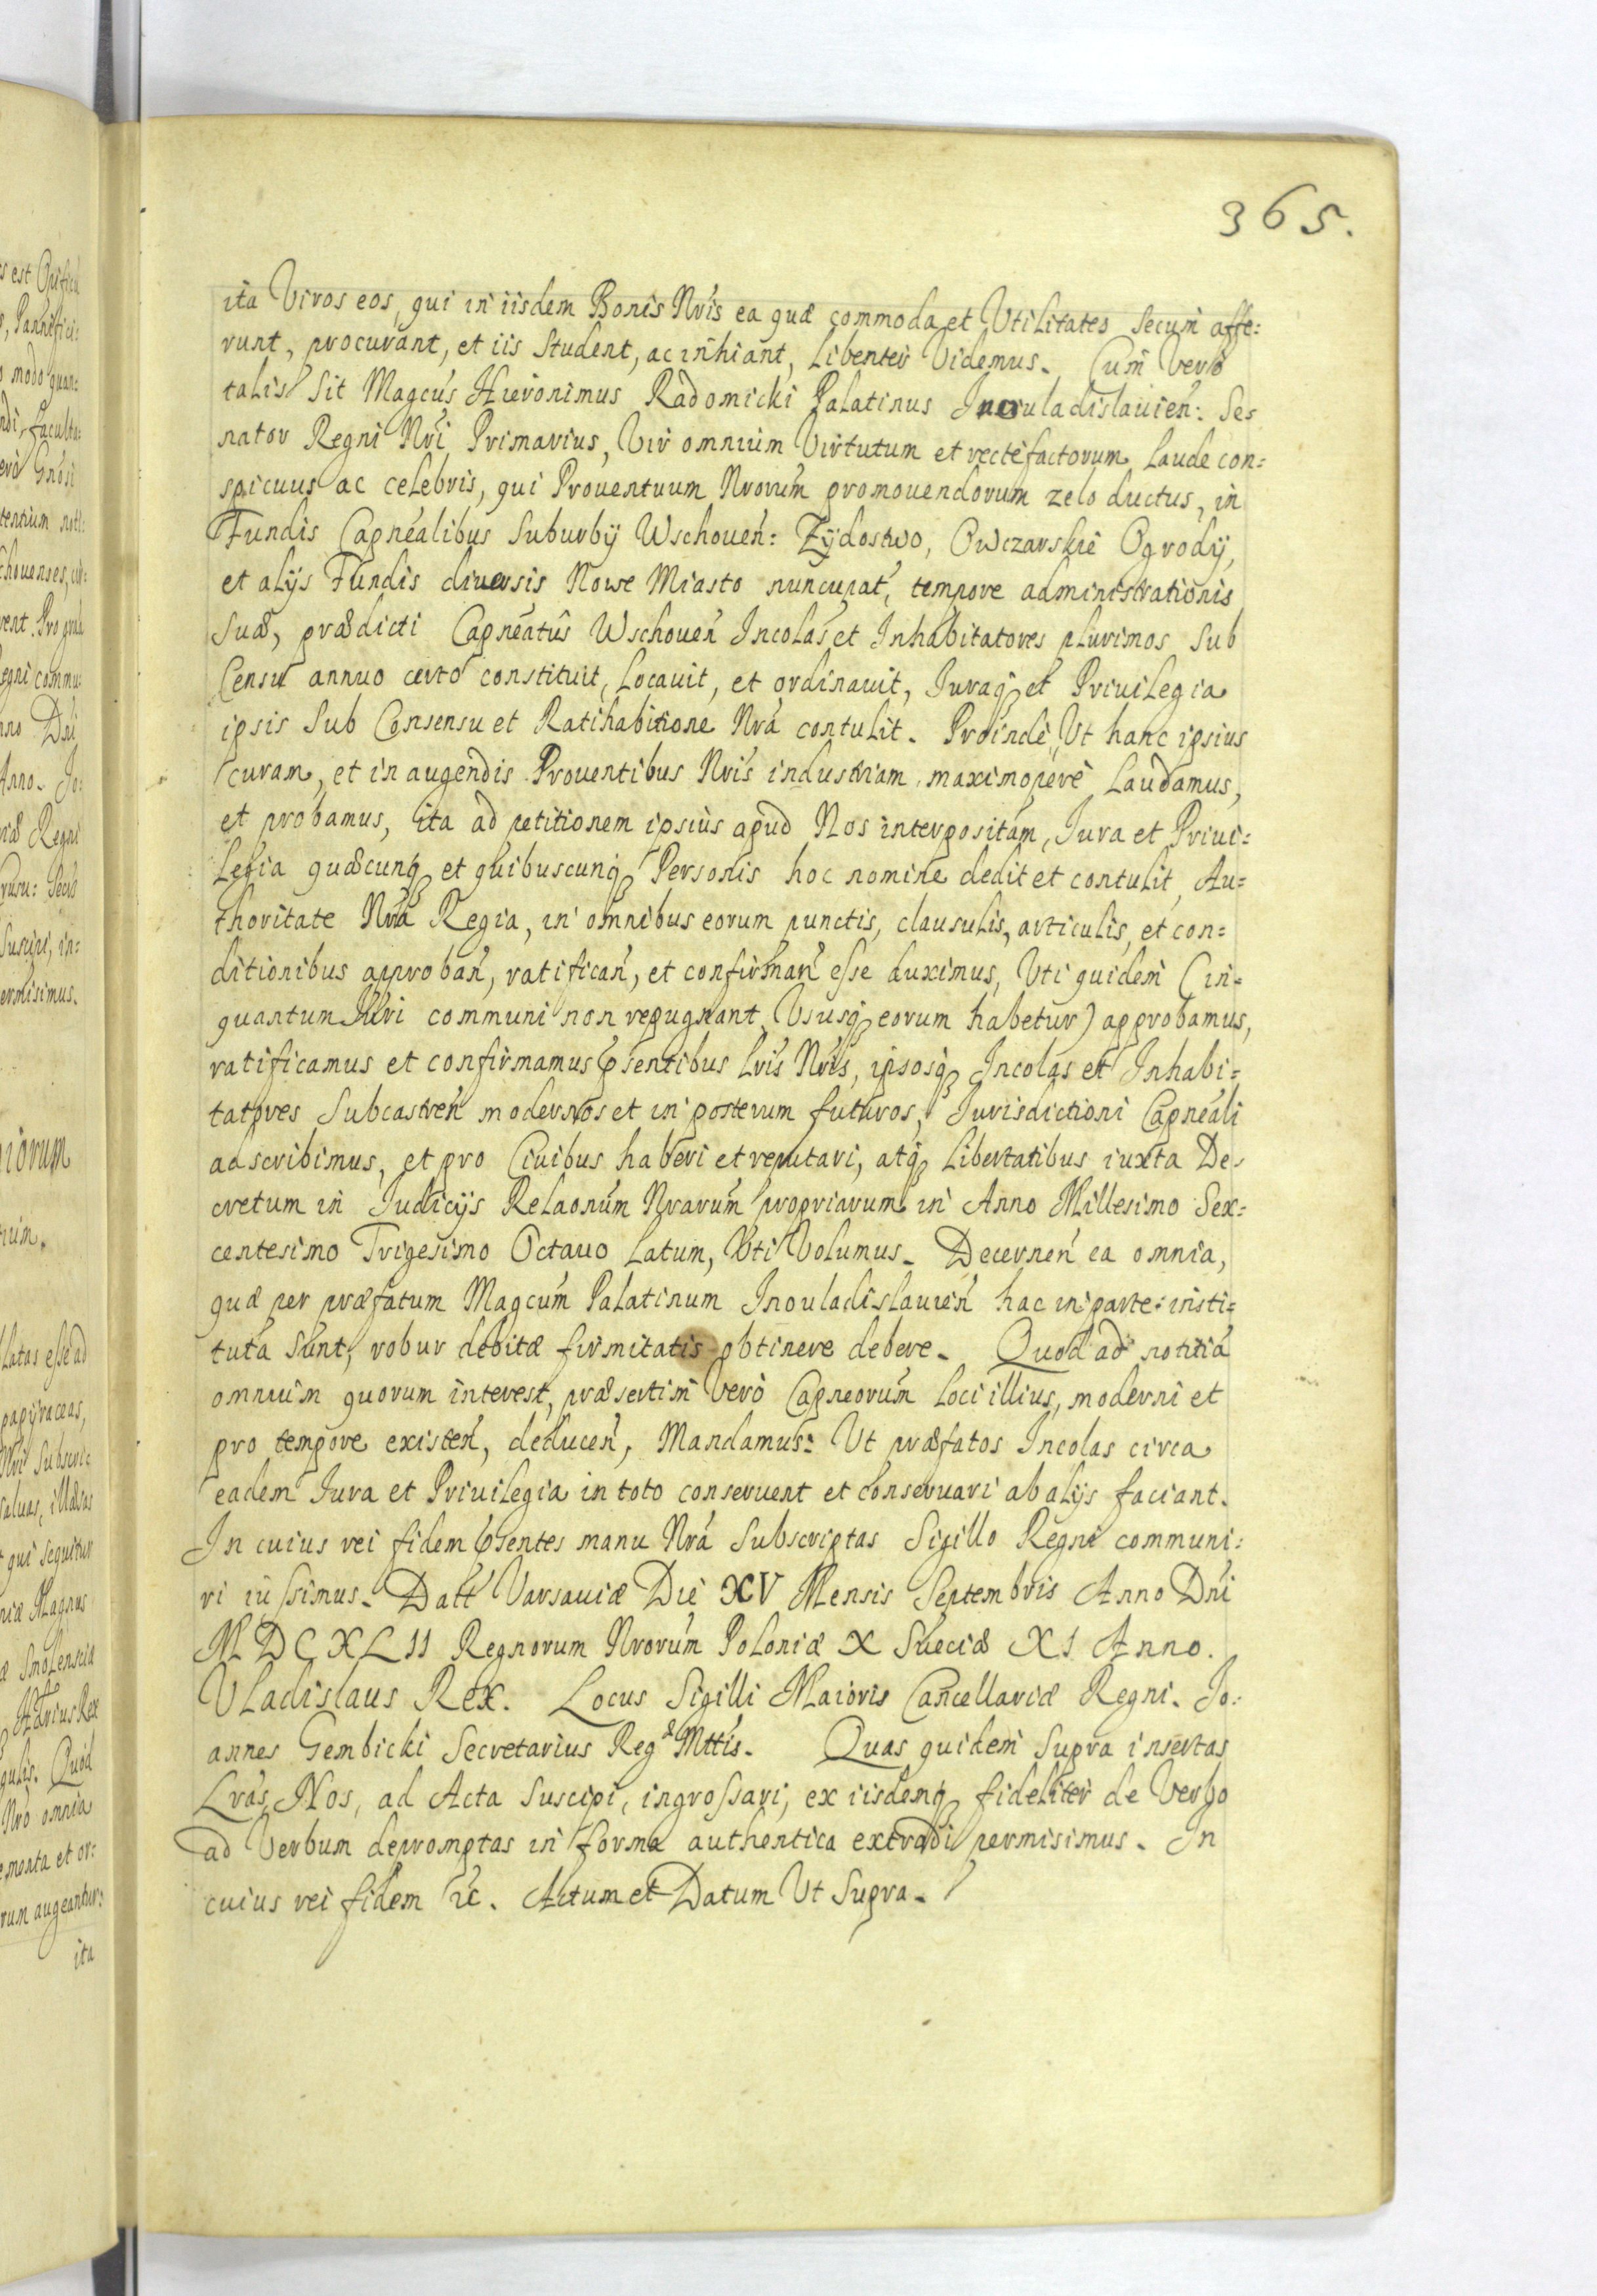 365.
ita Viros eos, qui in iisdem Bonis Nris ea quæ commoda et Utilitates secum affe:
runt, procurant, et iis student, ac inhiant, libenter Videmus. Cum Verò
talis sit Magcus Hieronimus Radomicki Palatinus Inouladislauien: Se:
nator Regni Nri Primarius, Vir omnium Virtutum et rectefactorum laude con:
spicuus ac celebris, qui Prouentuum Nrorum promouendorum zelo ductus, in
Fundis Capnealibus Suburbij Wschouen: Zÿdostwo, Owczarskie Ogrodÿ,
et alijs Fundis diuersis Nowe Miasto nuncupat, tempore administrationis
suæ, prædicti Capneatûs Wschouen Incolas et Inhabitatores plurimos sub
Censu annuo certo constituit, locauit, et ordinauit, Iuraq et Priuilegia
ipsis sub Consensu et Ratihabitione Nra contulit. Proinde Ut hanc ipsius
curam, et in augendis Prouentibus Nris industriam maximopere laudamus,
et probamus, ita ad petitionem ipsius apud Nos interpositam, Iura et Priui:
legia quæcunq et quibuscunq Personis hoc nomine dedit et contulit, Au:
thoritate Nra Regia, in omnibus eorum punctis, clausulis, articulis, et con:
ditionibus approban, ratifican, et confirman esse duximus, Uti quidem (in:
quantum Iuri communi non repugnant, Ususq eorum habetur) approbamus,
ratificamus et confirmamus psentibus Lris Nris, ipsosq Incolas et Inhabi:
tatores Subcastren modernos et in posterum futuros, Iurisdictioni Capneali
adscribimus, et pro Ciuibus haberi et reputari, atq libertatibus iuxta De:
cretum in Iudicijs Relaonum Nrarum propriarum in Anno Millesimo Sex:
centesimo Trigesimo Octauo latum, Uti Volumus. Decernen ea omnia,
quæ per præfatum Magcum Palatinum Inouladislauien hac in parte insti:
tuta sunt, robur debitæ firmitatis obtinere debere. Quod ad notitia
omnium quorum interest, præsertim Verò Capneorum loci illius, moderni et
pro tempore existen, deducen, Mandamus: Ut præfatos Incolas circa
eadem Iura et Priuilegia in toto conseruent et conseruari ab alijs faciant.
In cuius rei fidem psentes manu Nra subscriptas Sigillo Regni communi:
ri iussimus. Datt Varsauiæ Die XV Mensis Septembris Anno Dni
MDCXLII Regnorum Nrorum Poloniæ X Sueciæ XI Anno.
Vladislaus Rex. Locus Sigilli Maioris Cancellariæ Regni. Jo:
annes Gembicki Secretarius Regæ Mttis. Quas quidem supra insertas
Lras Nos, ad Acta suscipi, ingrossari, ex iisdemq fideliter de Verbo
ad Verbum depromptas in forma authentica extradi permisimus. In
cuius rei fidem &c. Actum et Datum Ut supra.